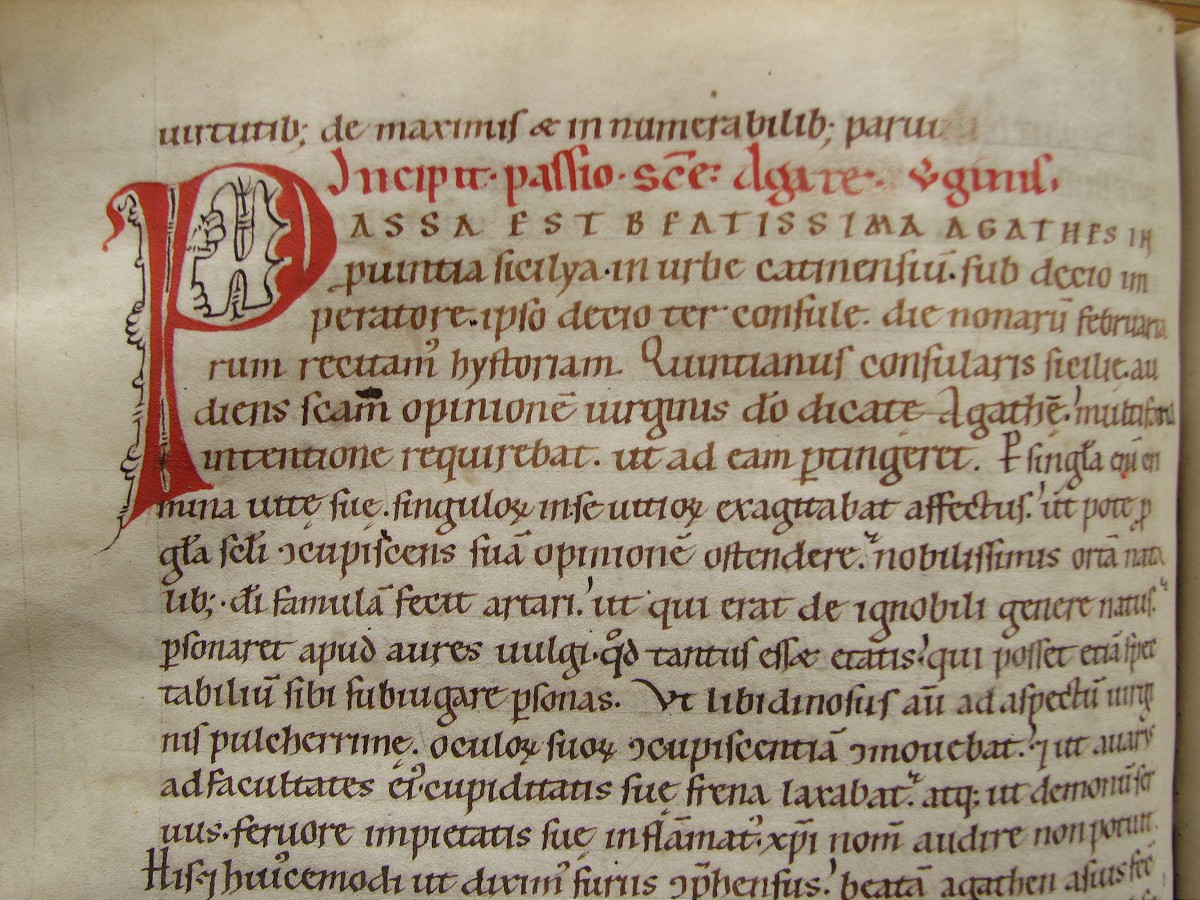 uirtutib; de maximis & in numerabilib; parui
Incipit · passio · sc̄e · Agate · ỽginis,
PASSA EST BEATISSIMA AGATHES IN
ꝓuintia sicilya · in urbe catinensiū · sub decio im
peratore · ipso decio ter consule · die nonarū februaria
rum recitam᾽ hystoriam. Quintianus consularis sicilie · au
diens scām opinionē uirginis dō dicate Agathę̄ · multifaria
intentione requirebat · ut ad eam ꝑtingeret. P singła eni᾽ en
mina uitę suę · singuloꝝ in se uitioꝝ exagitabat affectus · ut pote ꝓ
gła sełi ꝯcupiscens suā opinionē ostendere · nobilissimis ortā nata
lib; · dī famulā fecit artari · ut qui erat de ignobili genere natus ·
ꝑsonaret apud aures uulgi · qd̄ tantus ess& etatis · qui posset etiā spec
tabiliū sibi subiugare ꝑsonas. Vt libidinosus aū ad aspectū uirgi
nis pulcherrimę · oculoꝝ suoꝝ ꝯcupiscentiā ꝯmouebat · ⁊ ut auarus
ad facultates ei᾽ · cupiditatis suę frena laxabat · atq; ut demoniū ser
uus · feruore impietatis suę inflāmat᾽ · xp̄i nom̄ audire non potuit.
His ⁊ hui᾽cemodi ut dixim᾽ furiis ꝯp̄hensus · beatā agathen a suis fec̄